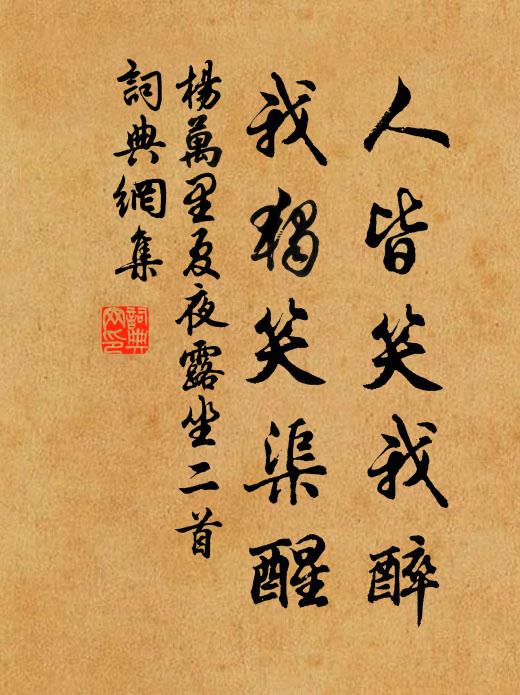 人皆笑我醉
我獨笑渠醒
楊萬里夏夜露坐二首
詞典網集
詞典網印